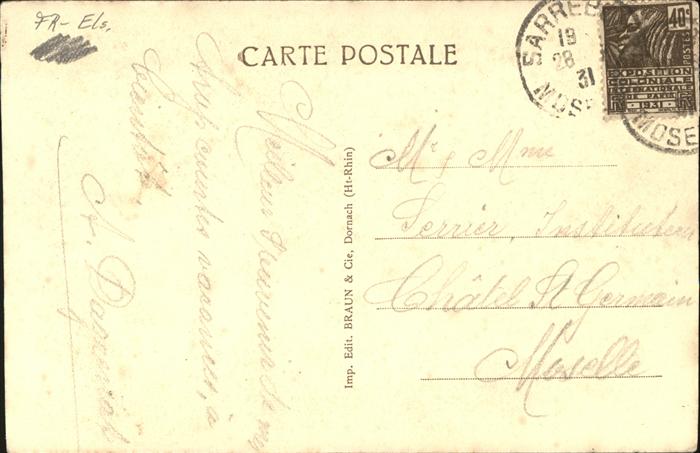 FR- Els.
CARTE POSTALE
SARREB
19
28
31
MOSE
MOSE
40c
POSTES
EXPOSITION
COLONIALE
INTERNATIONALE
DE PARIS
1931
Meilleur souvenir de mes
trop courtes vacances, à
bientôt,
Imp. Edit. BRAUN & Cie, Dornach (Ht-Rhin)
Mr & Mme
Perrier, Instituteur
Châtel St Germain
Moselle